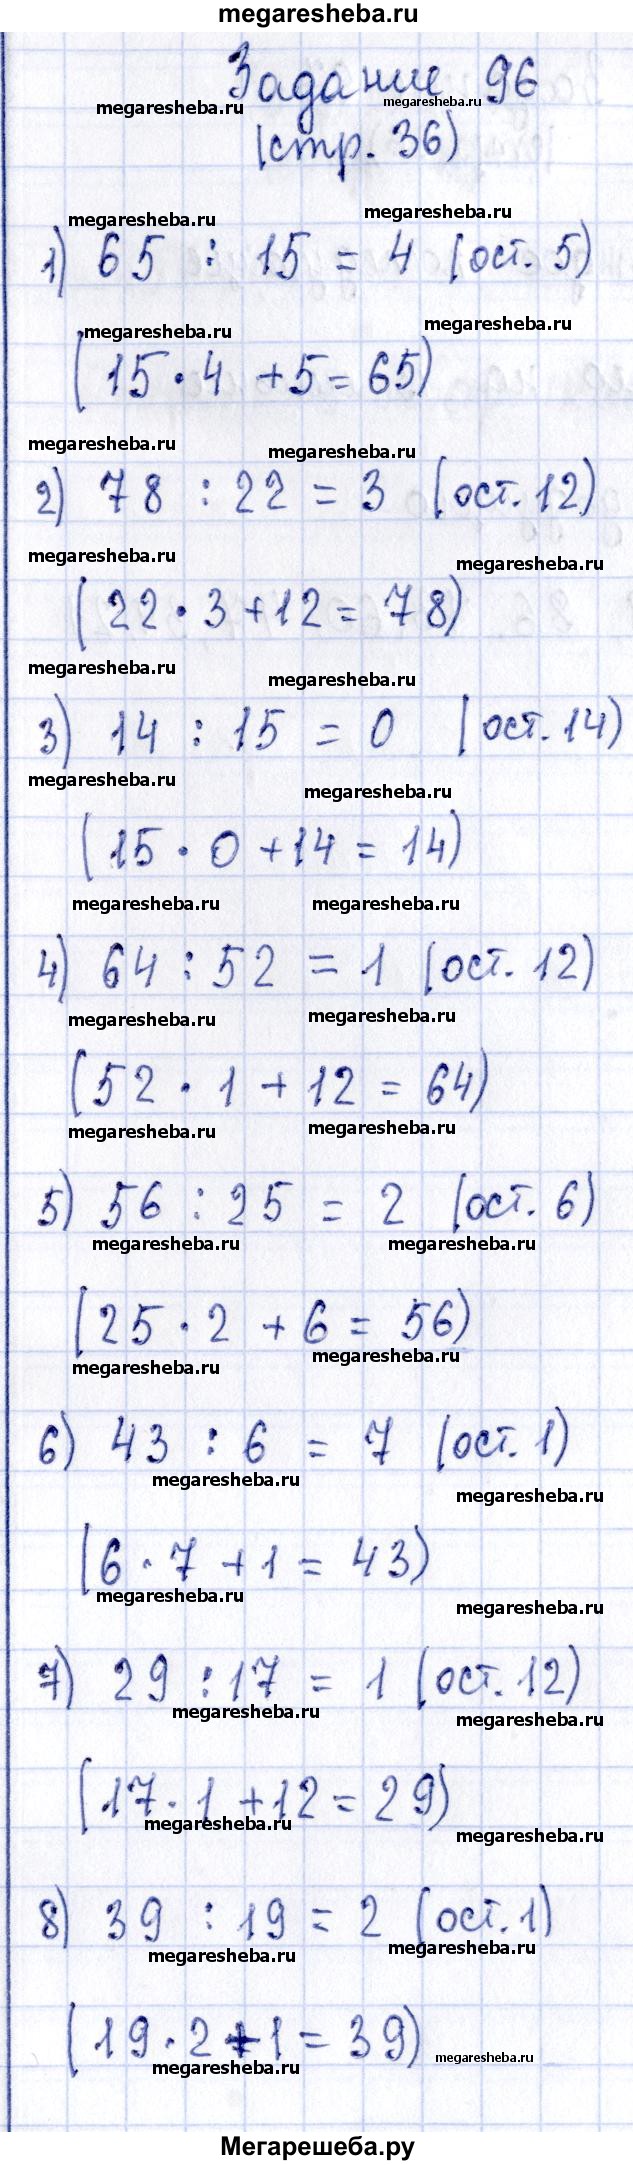 megaresheba.ru
Задание 96
megaresheba.ru megaresheba.ru
(стр. 36)
megaresheba.ru megaresheba.ru
1) 65 : 15 = 4 (ост. 5)
megaresheba.ru megaresheba.ru
(15 · 4 + 5 = 65)
megaresheba.ru megaresheba.ru
2) 78 : 22 = 3 (ост. 12)
megaresheba.ru megaresheba.ru
(22 · 3 + 12 = 78)
megaresheba.ru megaresheba.ru
3) 14 : 15 = 0 (ост. 14)
megaresheba.ru megaresheba.ru
(15 · 0 + 14 = 14)
megaresheba.ru megaresheba.ru
4) 64 : 52 = 1 (ост. 12)
megaresheba.ru megaresheba.ru
(52 · 1 + 12 = 64)
megaresheba.ru megaresheba.ru
5) 56 : 25 = 2 (ост. 6)
megaresheba.ru megaresheba.ru
(25 · 2 + 6 = 56)
megaresheba.ru megaresheba.ru
6) 43 : 6 = 7 (ост. 1)
megaresheba.ru megaresheba.ru
(6 · 7 + 1 = 43)
megaresheba.ru megaresheba.ru
7) 29 : 17 = 1 (ост. 12)
megaresheba.ru megaresheba.ru
(17 · 1 + 12 = 29)
megaresheba.ru megaresheba.ru
8) 39 : 19 = 2 (ост. 1)
megaresheba.ru megaresheba.ru
(19 · 2 + 1 = 39)
megaresheba.ru megaresheba.ru
Мегарешеба.ру